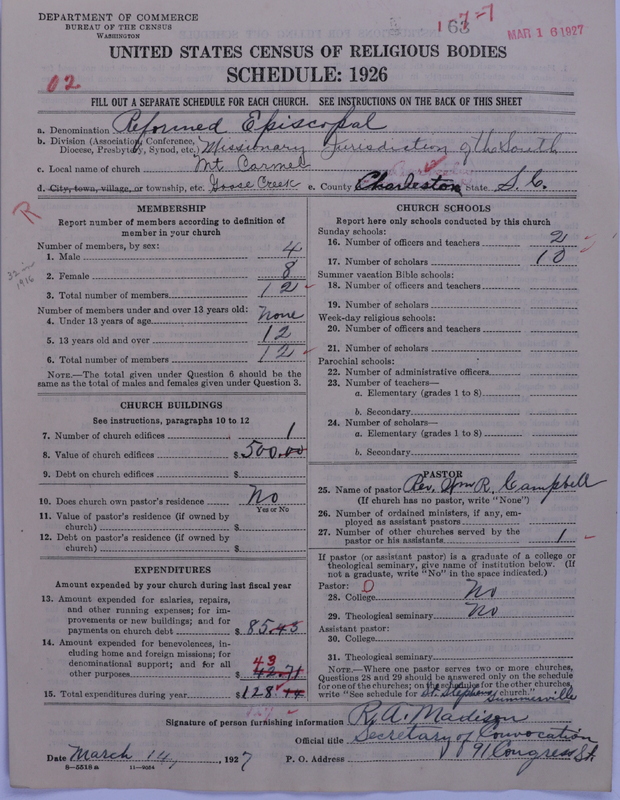 DEPARTMENT OF COMMERCE
BUREAU OF THE CENSUS
WASHINGTON
163
7-7
MAR 16 1927
UNITED STATES CENSUS OF RELIGIOUS BODIES
SCHEDULE: 1926
02
FILL OUT A SEPARATE SCHEDULE FOR EACH CHURCH. SEE INSTRUCTIONS ON THE BACK OF THIS SHEET
a. Denomination Reformed Episcopal
b. Division (Association, Conference, Diocese, Presbytery, Synod, etc.) Missionary Jurisdiction of the South
c. Local name of church Mt. Carmel
d. City, town, village, or township, etc. Goose Creek e. County Charleston State S.C.
R
32 in 1916
MEMBERSHIP
Report number of members according to definition of
member in your church
Number of members, by sex:
1. Male 4
2. Female 8
3. Total number of members 12
Number of members under and over 13 years old:
4. Under 13 years of age None
5. 13 years old and over 12
6. Total number of members 12
NOTE.—The total given under Question 6 should be
same as the total of males and females given under Question 3.
CHURCH BUILDINGS
See instructions, paragraphs 10 to 12
7. Number of church edifices 1
8. Value of church edifices $500.00
9. Debt on church edifices $
10. Does church own pastor's residence No
Yes or No
11. Value of pastor's residence (if owned by
church) $
12. Debt on pastor's residence (if owned by
church) $
EXPENDITURES
Amount expended by your church during last fiscal year
13. Amount expended for salaries, repairs,
and other running expenses; for im-
provements or new buildings; and for
payments on church debt $85.45
14. Amount expended for benevolences, in-
cluding home and foreign missions; for
denominational support; and for all
other purposes $42.71
43
15. Total expenditures during year $128
CHURCH SCHOOLS
Report here only schools conducted by this church
Sunday schools:
16. Number of officers and teachers 2
17. Number of scholars 10
Summer vacation Bible schools:
18. Number of officers and teachers
19. Number of scholars
Week-day religious schools:
20. Number of officers and teachers
21. Number of scholars
Parochial schools:
22. Number of administrative officers
23. Number of teachers—
a. Elementary (grades 1 to 8)
b. Secondary
24. Number of scholars—
a. Elementary (grades 1 to 8)
b. Secondary
PASTOR
25. Name of pastor Rev. Wm R. Campbell
(If church has no pastor, write "None")
26. Number of ordained ministers, if any, em-
ployed as assistant pastors
27. Number of other churches served by the
pastor or his assistants 1
If pastor (or assistant pastor) is a graduate of a college or
theological seminary, give name of institution below. (If
not a graduate, write "No" in the space indicated.)
Pastor:
28. College No
29. Theological seminary No
Assistant pastor:
30. College
31. Theological seminary
NOTE.—Where one pastor serves two or more churches,
Questions 28 and 29 should be answered only on the schedule
for one of the churches; on the schedule for the other churches,
write "See schedule for St. Stephens church."
Summerville
Signature of person furnishing information R. A. Madison
Official title Secretary of Convocation
Date March 14, 1927 P. O. Address 91 Congress St.
8-5518a 11-9084